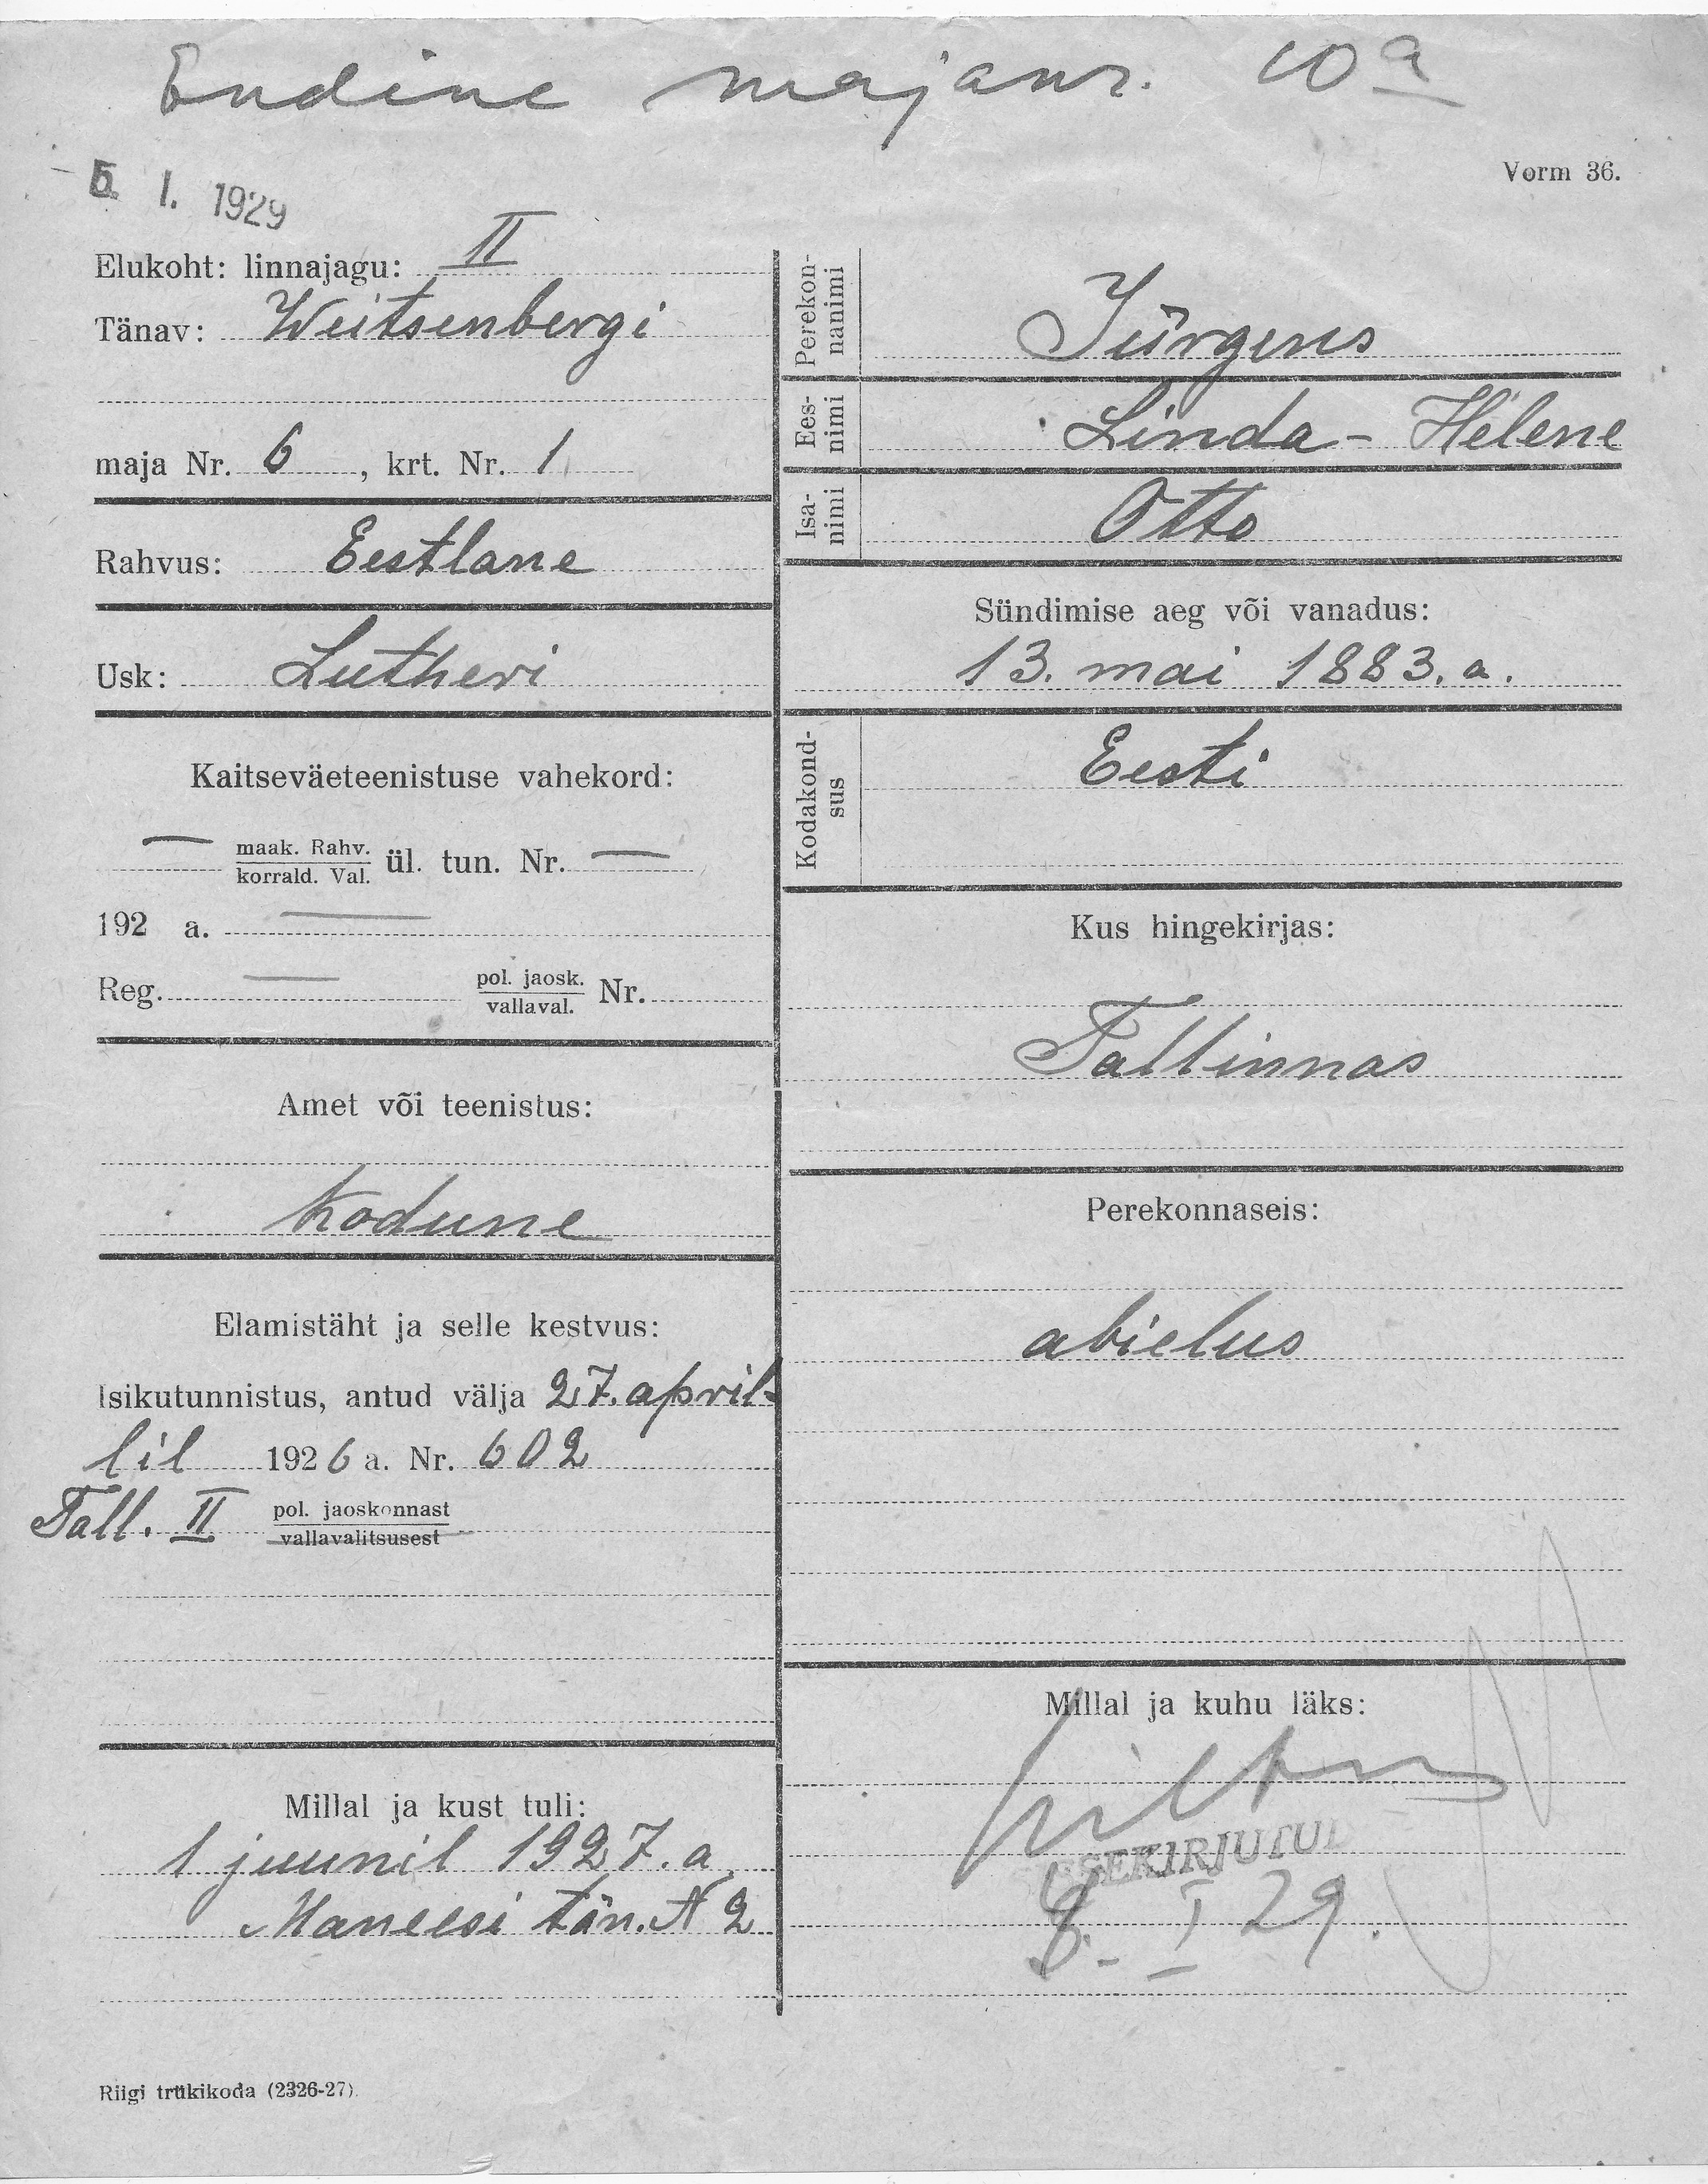 Endine majanr. 10a
5. I. 1929
Vorm 36.
Elukoht: linnajagu: II
Tänav: Weitsenbergi
maja Nr. 6, krt. Nr. 1
Rahvus: Eestlane
Usk: Lutheri
Kaitseväeteenistuse vahekord:
— maak. Rahv. korrald. Val. ül. tun. Nr. —
192 a. —
Reg. — pol. jaosk. vallaval. Nr.
Amet või teenistus:
Kodune
Elamistäht ja selle kestvus:
Isikutunnistus, antud välja 27. april-
lil 1926 a. Nr. 602
Tall. II pol. jaoskonnast
vallavalitsusest
Millal ja kust tuli:
1 juunil 1927. a.
Maneesi tän. N 2
Riigi trükikoda (2326-27).
Perekon-
nanimi
Jürgens
Ees-
nimi
Linda-Helene
Isa-
nimi
Otto
Sündimise aeg või vanadus:
13. mai 1883. a.
Kodakond-
sus
Eesti
Kus hingekirjas:
Tallinnas
Perekonnaseis:
abielus
Millal ja kuhu läks:
SEKIRJUTUD
I 29.